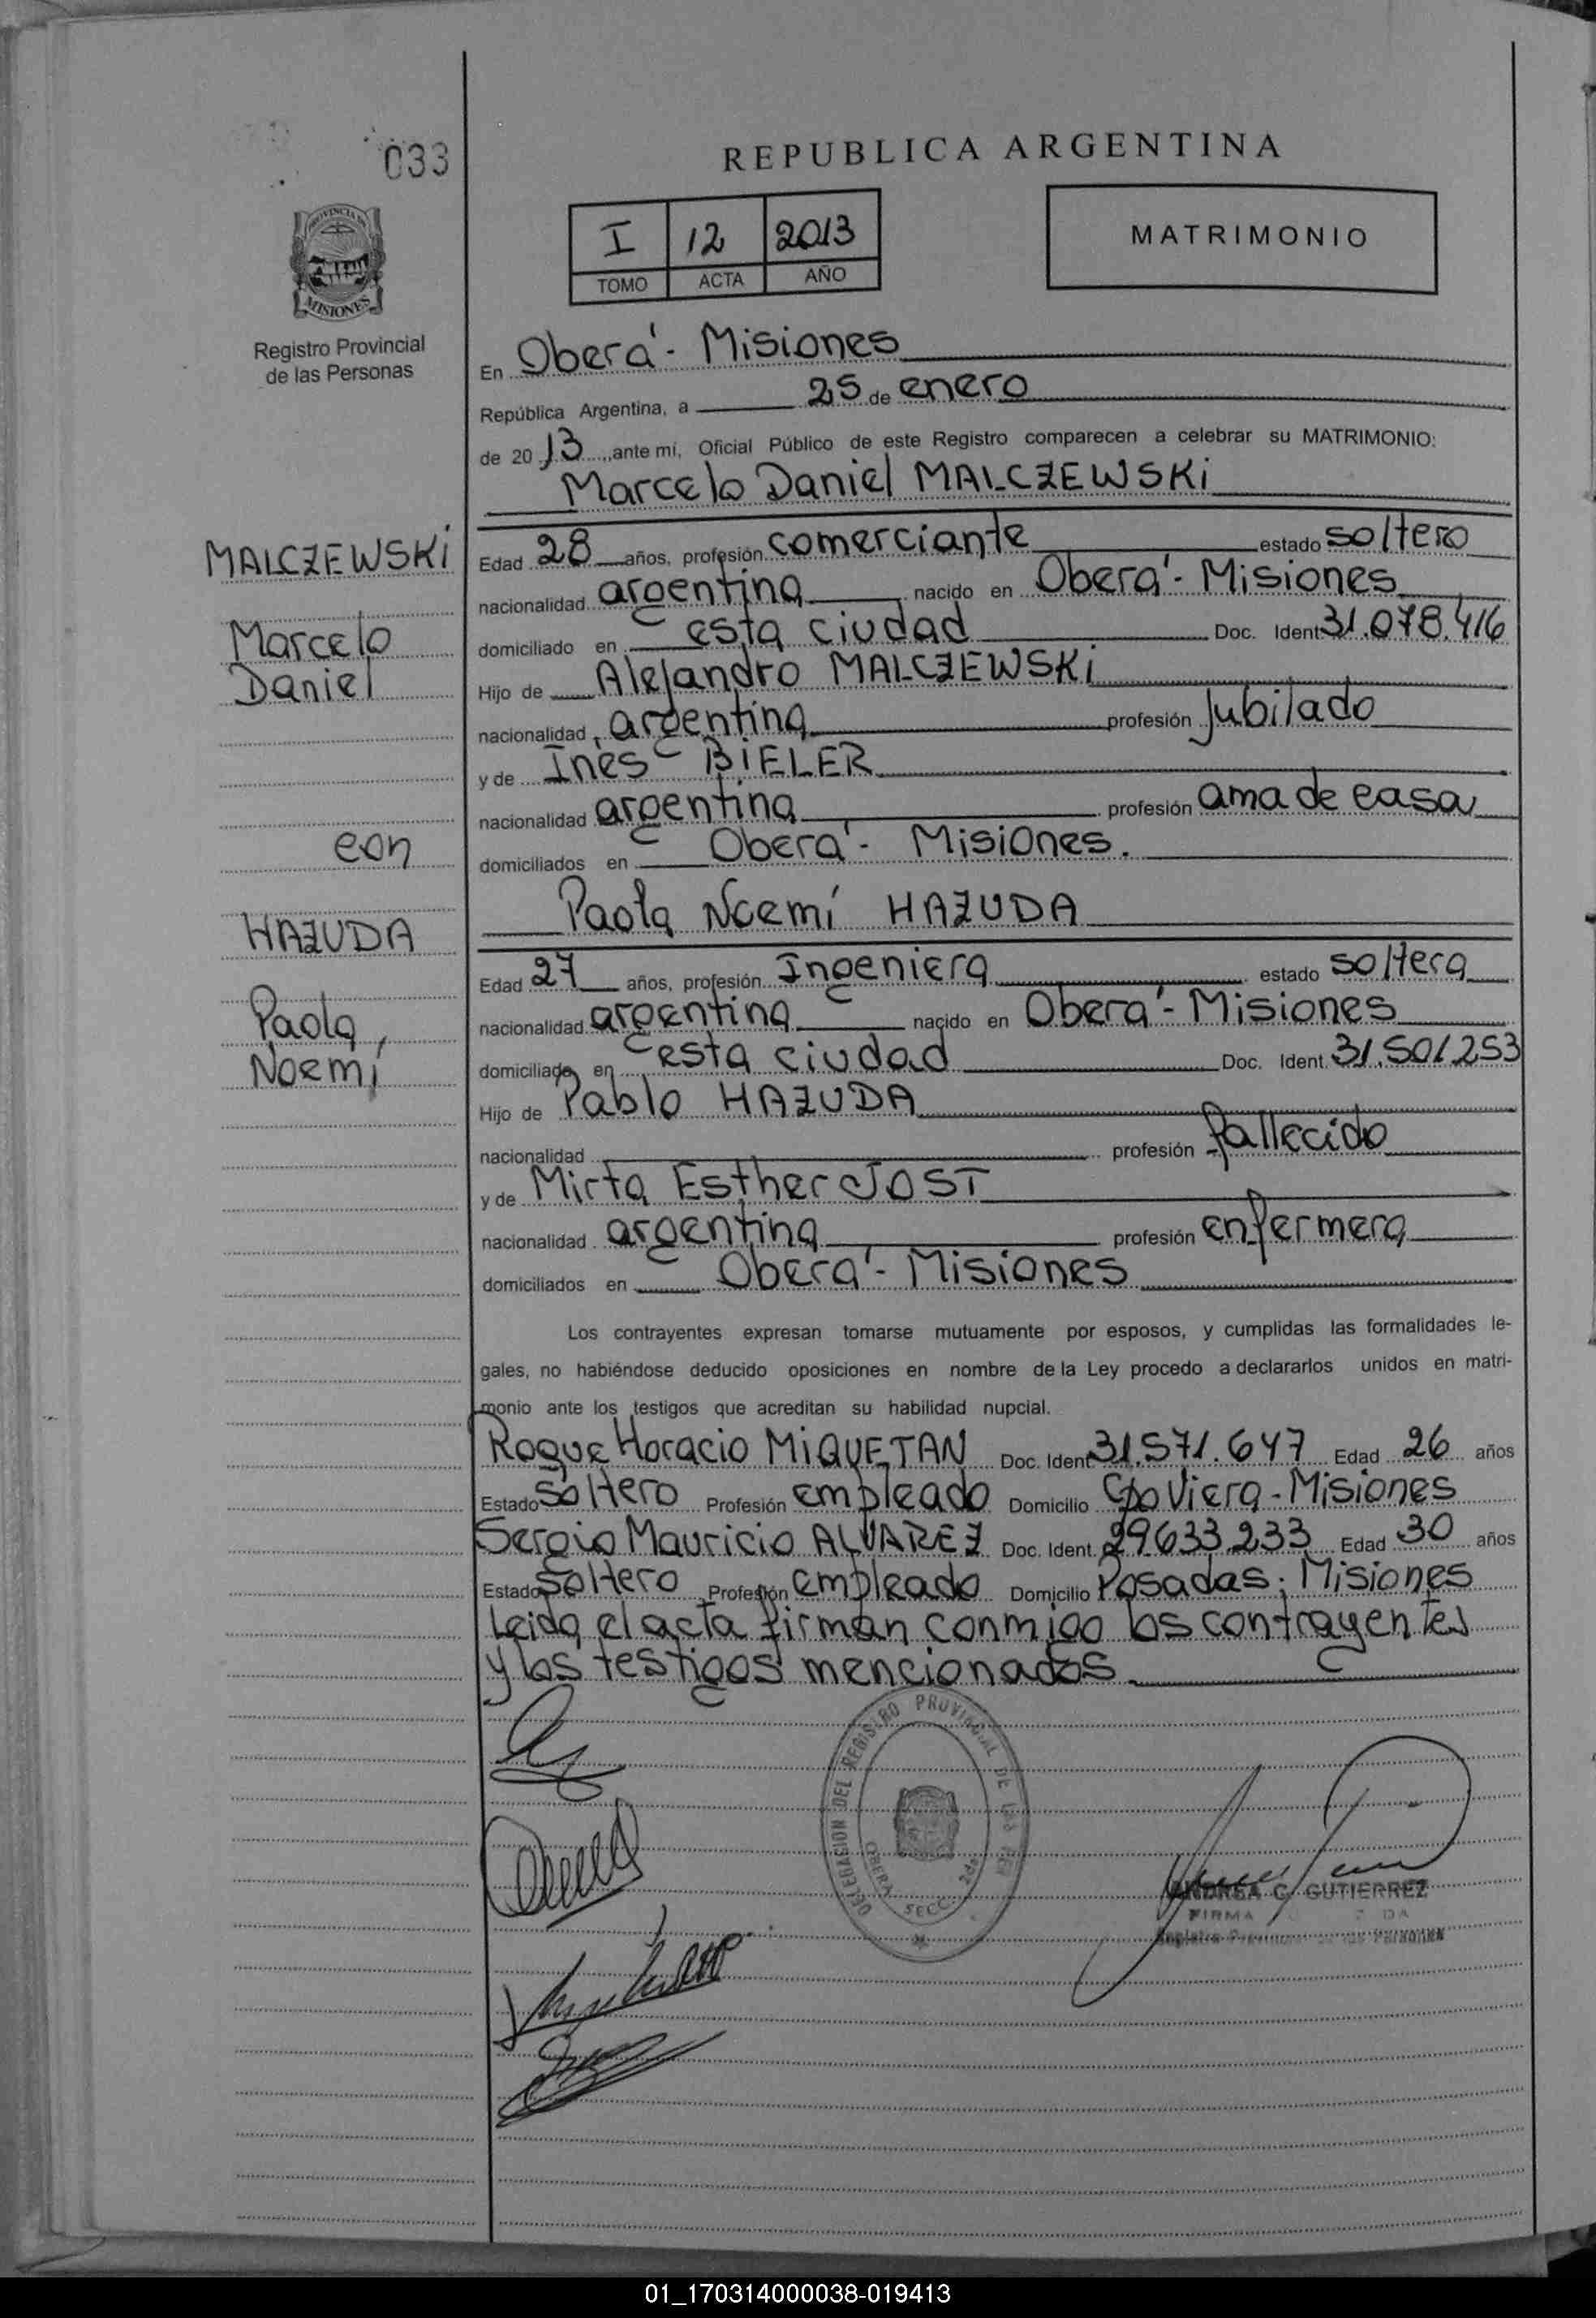 033
REPUBLICA ARGENTINA
I 12 2013
TOMO ACTA AÑO
MATRIMONIO
PROVINCIA DE
MISIONES
Registro Provincial
de las Personas
En Oberá - Misiones
República Argentina, a 25 de enero
de 2013 ante mí, Oficial Público de este Registro comparecen a celebrar su MATRIMONIO:
Marcelo Daniel MALCZEWSKi
MALCZEWSKi
Marcelo
Daniel
con
HAZUDA
Paola
Noemí
Edad 28 años, profesión comerciante estado soltero
nacionalidad argentina nacido en Oberá - Misiones
domiciliado en esta ciudad Doc. Ident 31.078.416
Hijo de Alejandro MALCZEWSKi
nacionalidad argentina profesión Jubilado
y de Inés BiELER
nacionalidad argentina profesión ama de casa
domiciliados en Oberá - Misiones.
Paola Noemí HAZUDA
Edad 27 años, profesión Ingeniera estado soltera
nacionalidad argentina nacido en Oberá - Misiones
domiciliada en esta ciudad Doc. Ident. 31.501.253
Hijo de Pablo HAZUDA
nacionalidad profesión fallecido
y de Mirta Esther JOST
nacionalidad argentina profesión enfermera
domiciliados en Oberá - Misiones
Los contrayentes expresan tomarse mutuamente por esposos, y cumplidas las formalidades le-
gales, no habiéndose deducido oposiciones en nombre de la Ley procedo a declararlos unidos en matri-
monio ante los testigos que acreditan su habilidad nupcial.
Roque Horacio MiQUETAN Doc. Ident 31.571.647 Edad 26 años
Estado soltero Profesión empleado Domicilio Cpo Viera - Misiones
Sergio Mauricio ALVAREZ Doc. Ident. 29.633.233 Edad 30 años
Estado soltero Profesión empleado Domicilio Posadas - Misiones
Leida el acta firman conmigo los contrayentes
y los testigos mencionados
DELEGACION DEL REGISTRO PROVINCIAL DE LAS PER
OBERA SECC. 2da
ANDREA C. GUTIERREZ
FIRMA
Registro Provincial de las Personas
01_170314000038-019413